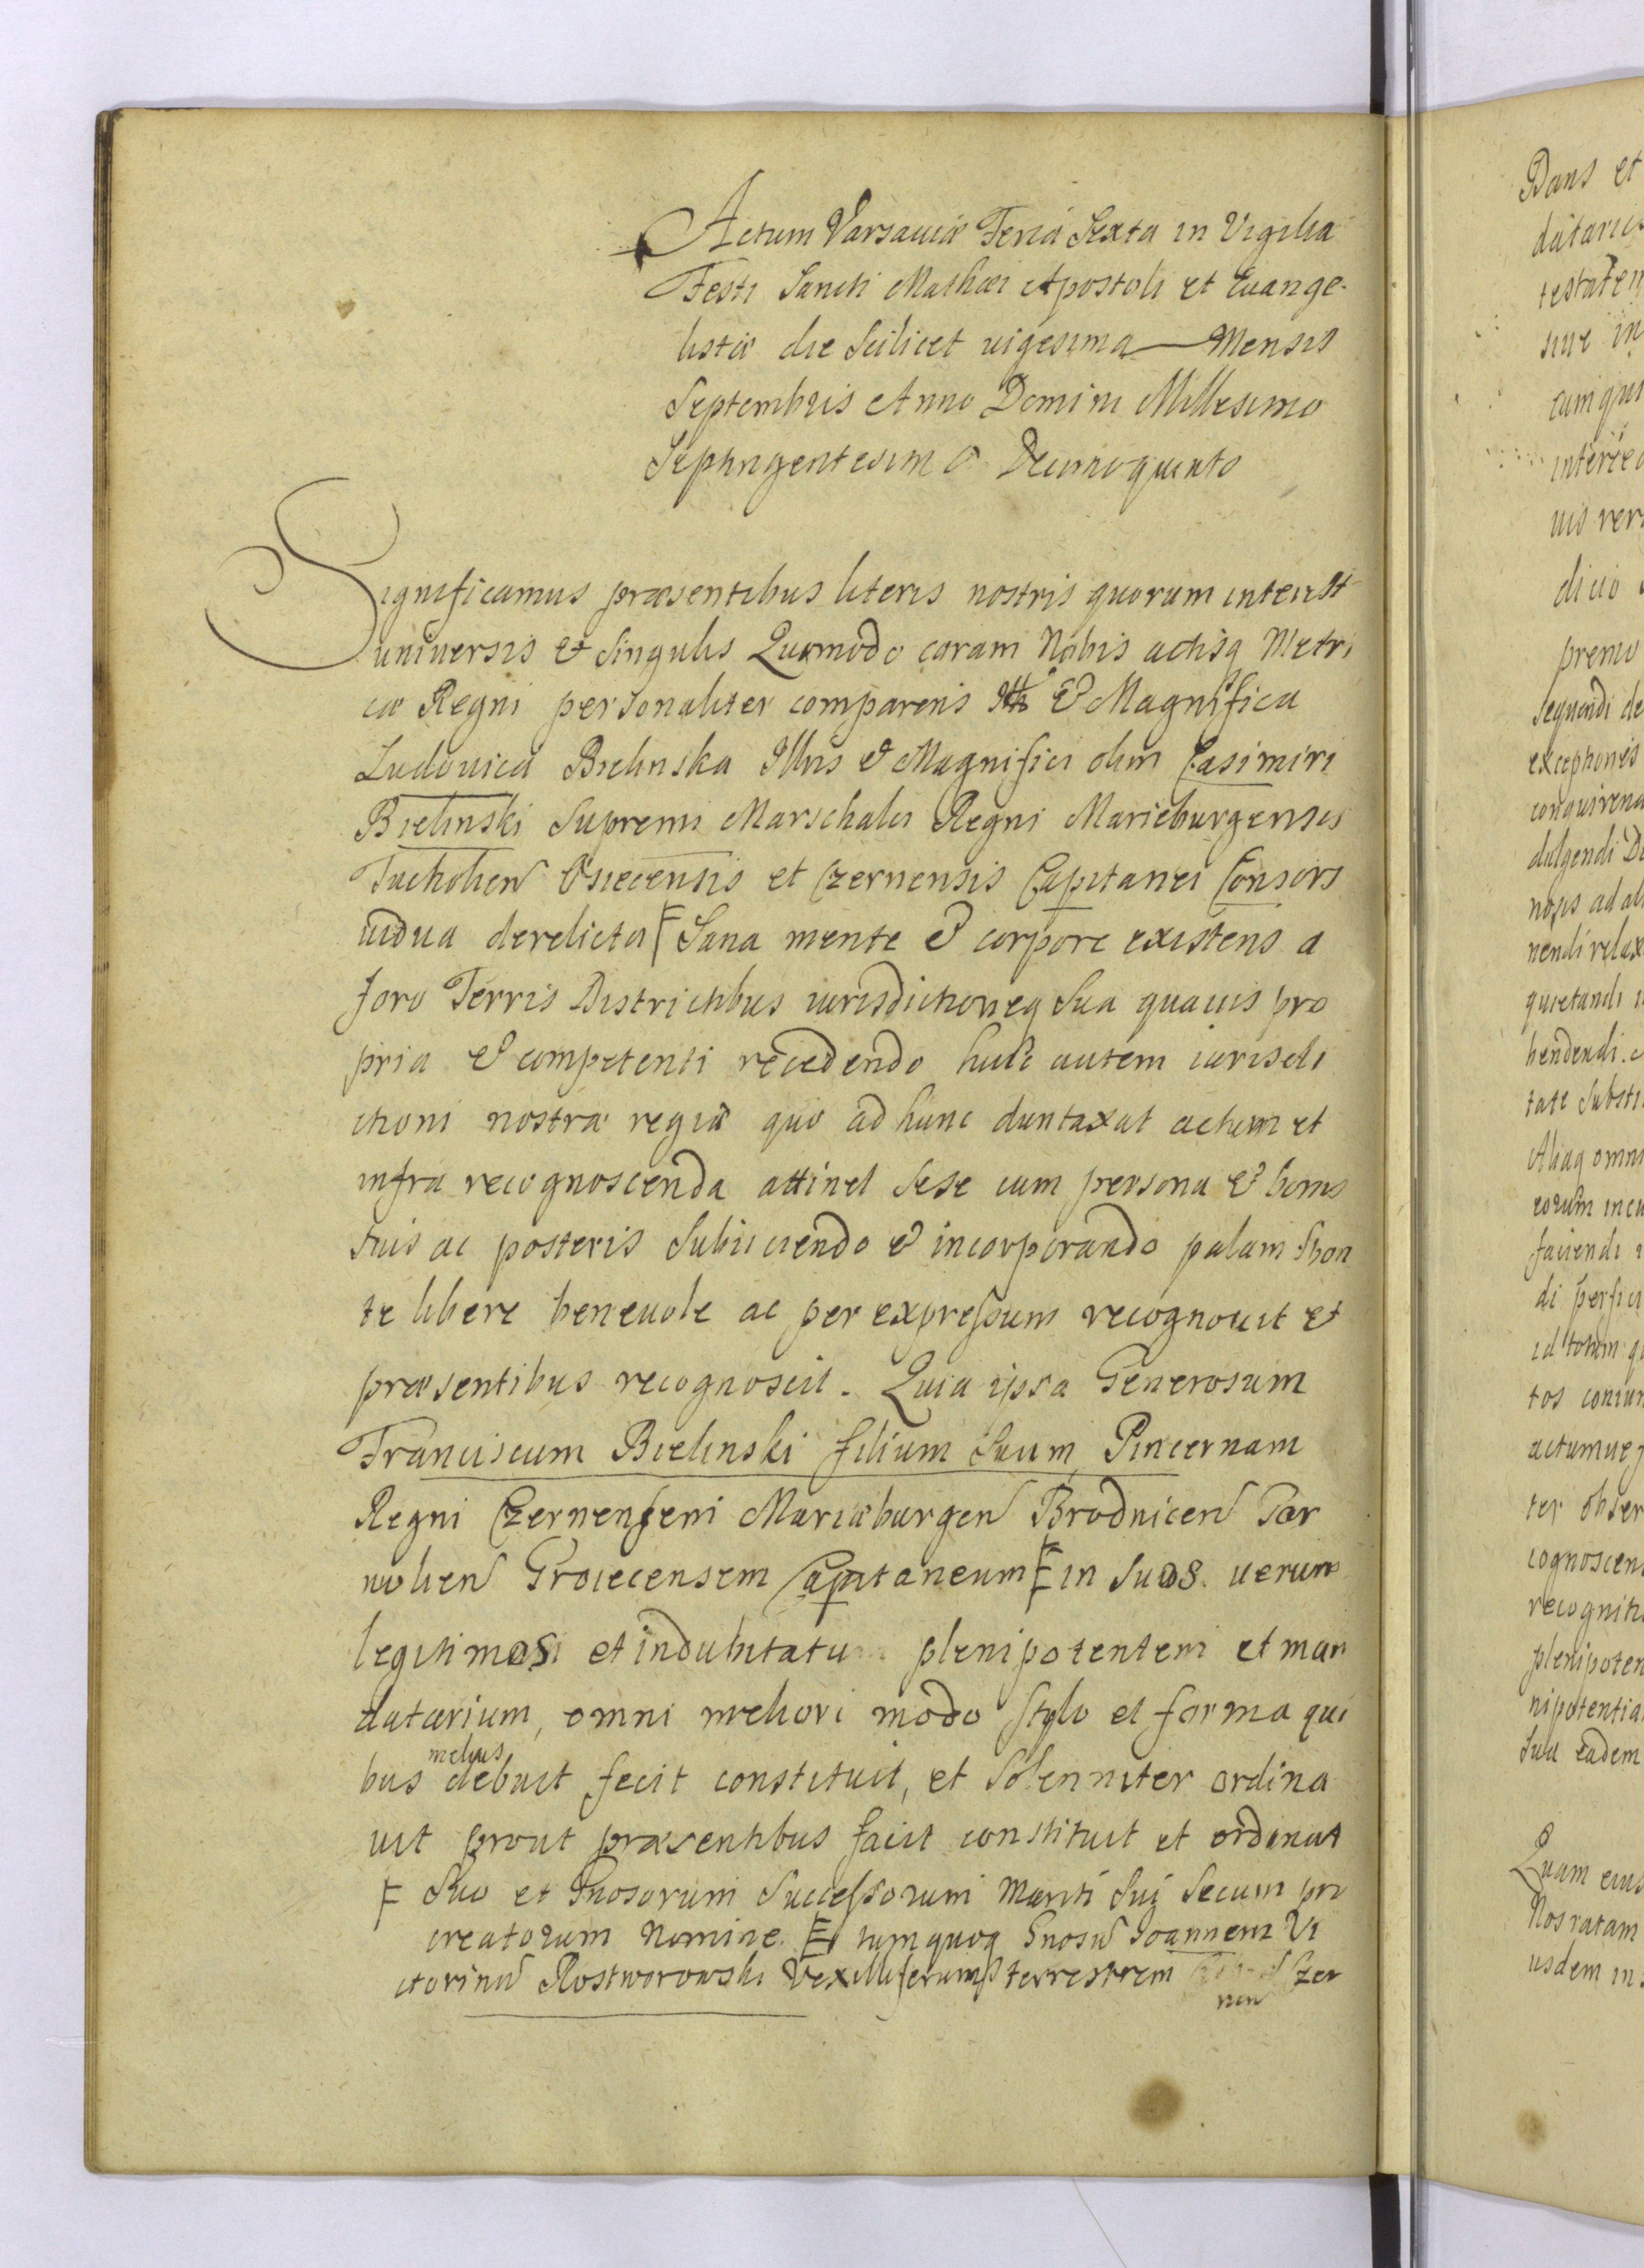 Actum Varsaviæ Feria Sexta in Vigilia
Festi Sancti Mathæi Apostoli et Evange-
listæ die Scilicet uigesima Mensis
Septembris Anno Domini Millesimo
Septingentesimo Decimoquinto
Significamus præsentibus literis nostris quorum interest
universis & Singulis Quomodo coram Nobis actisq Metri
cæ Regni personaliter comparens Illis & Magnifica
Ludovica Bielinska Illris & Magnifici olim Casimiri
Bielinski Supremi Marschalci Regni Marieburgensis
Tucholien Osiecensis et Czernensis Capitanei Consors
uidua derelicta Sana mente & corpore existens a
foro Terris Districtibus iurisdictioneq Sua quauis pro
pria & competenti recedendo huic autem iurisdi
ctioni nostræ regiæ quo ad hunc duntaxat actum et
infra recognoscenda attinet Sese cum persona & bonis
Suis ac posteris Subiiciendo & incorporando palam Spon
te libere beneuole ac per expressum recognouit et
præsentibus recognoscit. Quia ipsa Generosum
Franciscum Bielinski filium Suum Pincernam
Regni Czernensem Mariæburgen Brodnicen Gar
wolien Groiecensem Capitaneum in Suos uerum
legitimos et indubitatu plenipotentem et man
datarium, omni meliori modo Stylo et forma qui
bus melius debuit fecit constituit, et Solenniter ordina
uit prout præsentibus facit constituit et ordinat
Suo et Gnosorum Successorum Mariti Sui Secum pro
creatorum Nomine. tumquoq Gnosu Joannem Vi
ctorinu Rostworowski Vexilliferum terrestrem Czer
nen
Dans et
datarius
testatem
siue in
cumqui
interced
uis rer
dicio
premo
Sequendi de
exceptionis
conquirend
dulgendi
nosis ad al
nendi relax
quietandi
hendendi.
tate Substi
Aliaq omni
eorum
faciendi
di perfici
id totum
tos coniun
actumue
ter obser
cognoscen
recogniti
plenipoten
nipotentia
Sua eadem
Quam eius
Nos ratam
usdem in